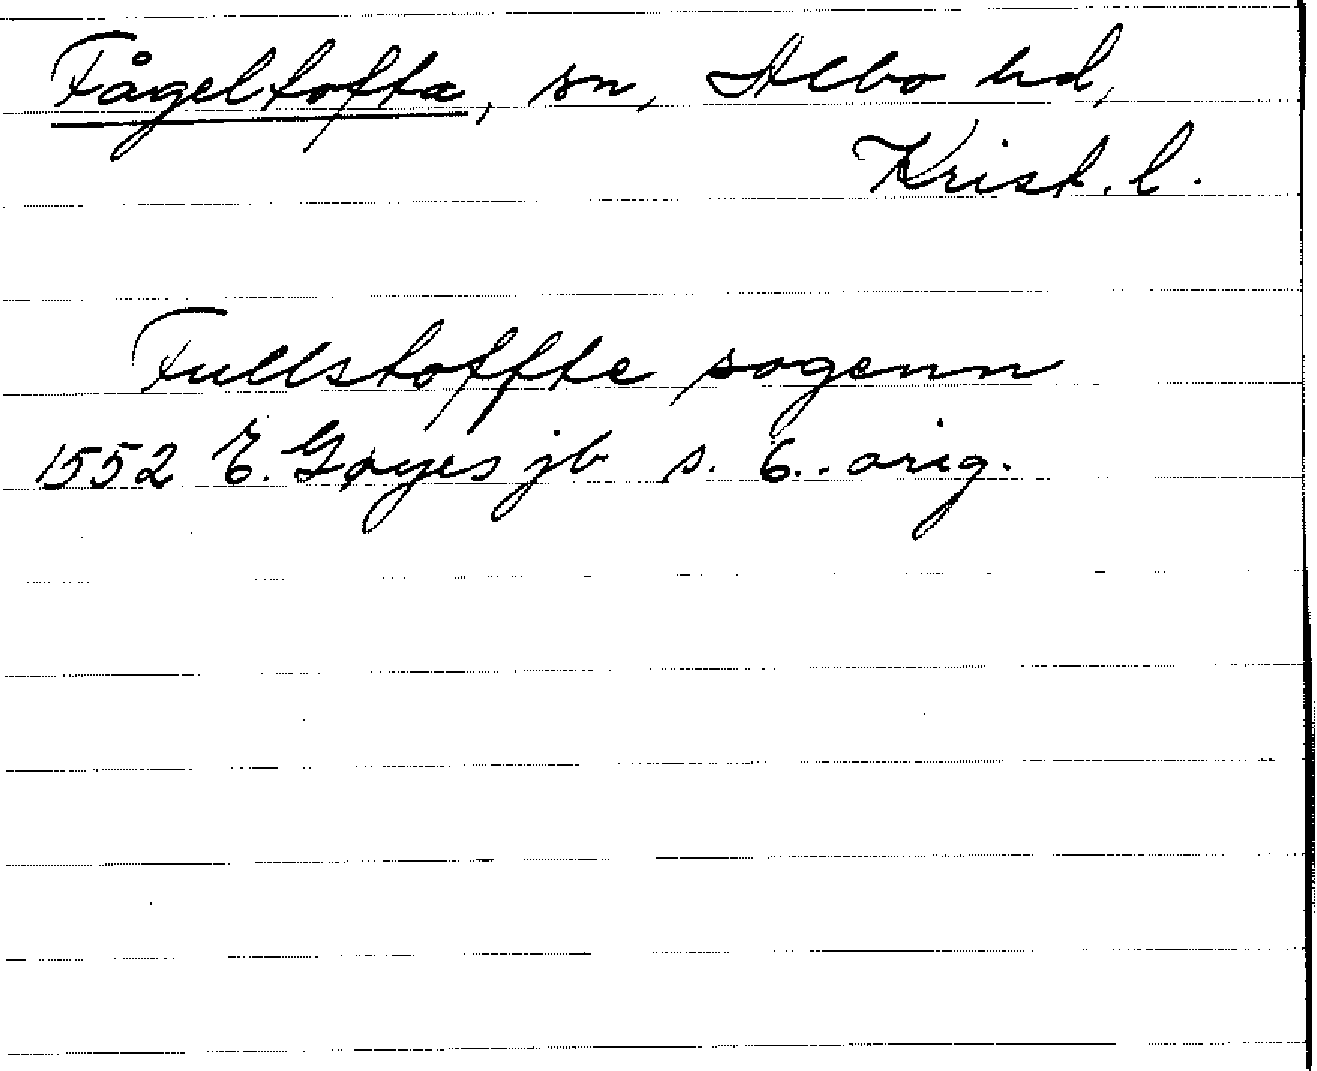 Fågeltofta, sn, Albo hd,
Krist. l.
Fullstoffte sogenn
1552 E. Gøyes jb s. 6. orig.